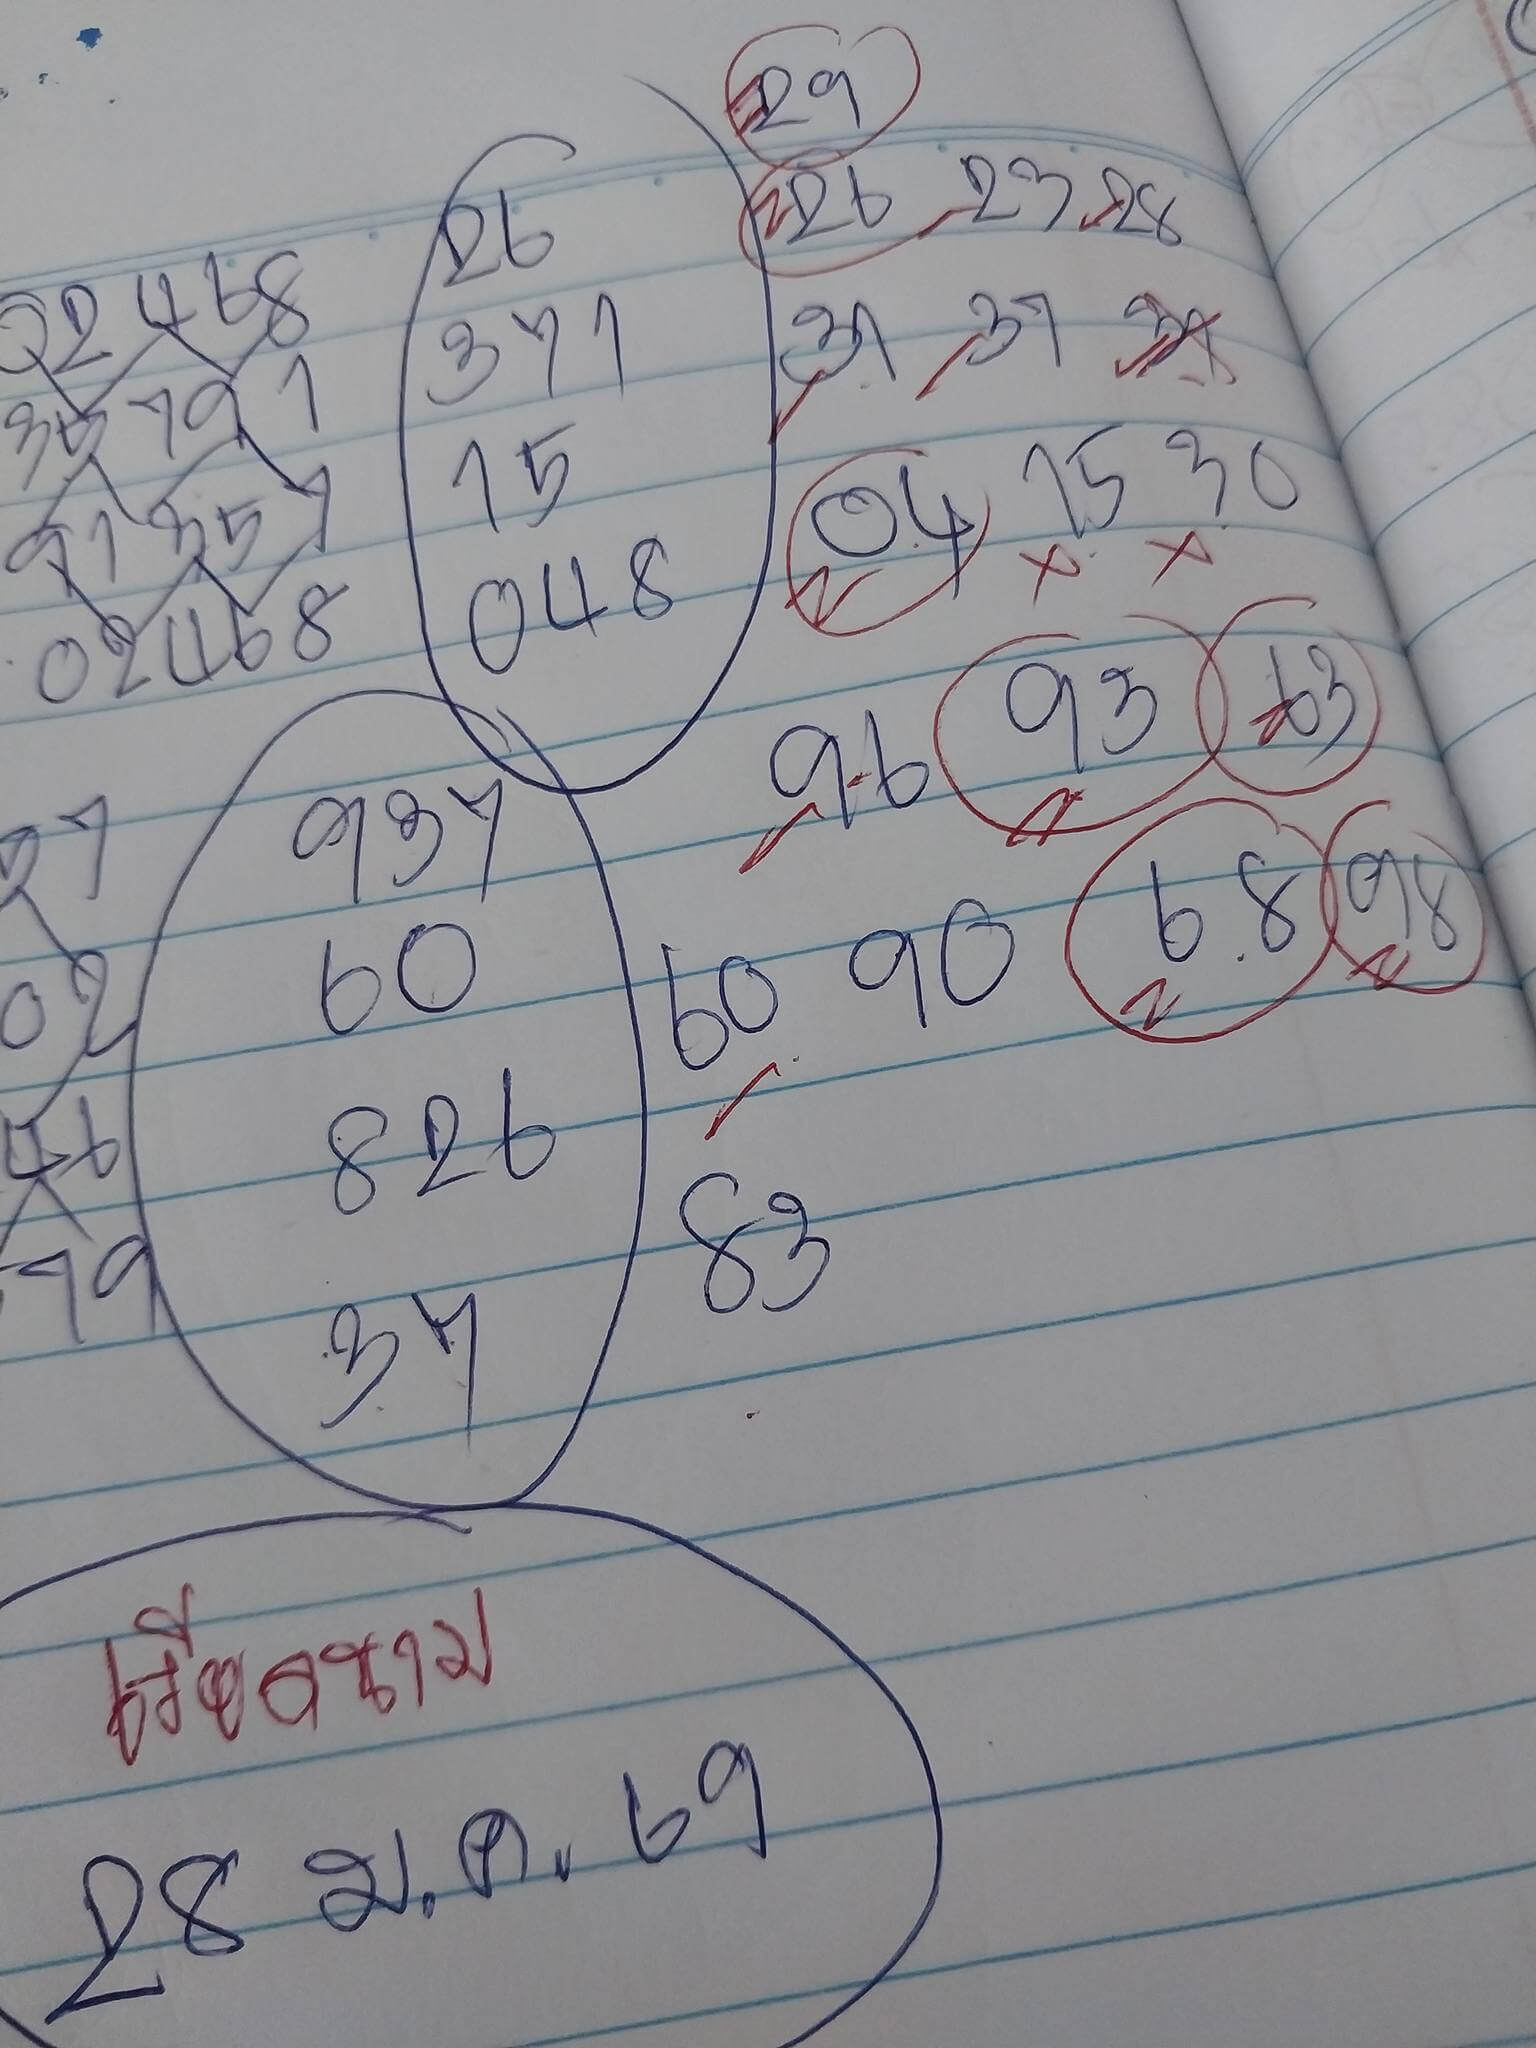 29
26 23 28
26
02468
371
31 37 37
35791
15
04 15 30
91357
048
02468
96 93 63
937
60
60 90 6.8 98
02
826
46
83
79
37
เวียดนาม
28 ม.ค. 69